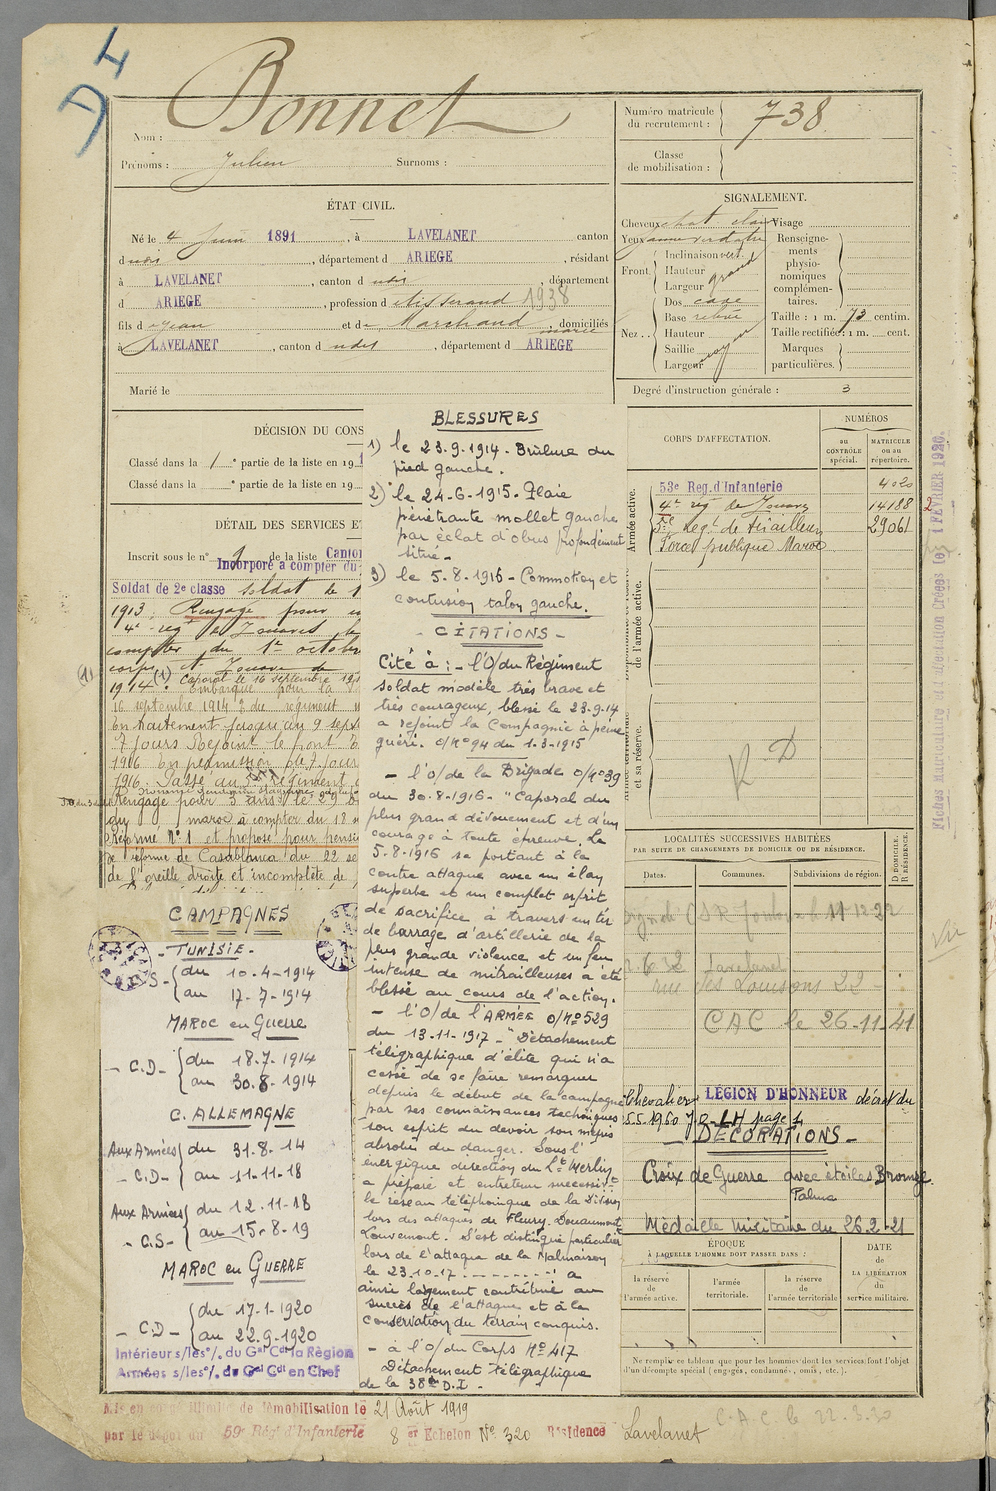 A 4
Bonnet
Nom :
Prénoms : Julien Surnoms :
Numéro matricule du recrutement : 738
Classe de mobilisation :
ÉTAT CIVIL.
Né le 4 Juin 1891, à LAVELANET canton
d udit, département d ARIEGE, résidant
à LAVELANET, canton d udit, département
d ARIEGE, profession d Tisserand 1938
fils d e Jean et d e Marchand Marie, domiciliés
à LAVELANET, canton d udit, département d ARIEGE
Marié le
SIGNALEMENT.
Cheveux chat. clair
Yeux verdâtre
Front : Inclinaison vert.
Hauteur
Largeur grand
Nez : Dos cave
Base relevée
Hauteur
Saillie
Largeur moyen
Visage
Renseignements physionomiques complémentaires.
Taille : 1 m. 73 centim.
Taille rectifiée : 1 m. cent.
Marques particulières.
Degré d'instruction générale : 3
DÉCISION DU CONS
Classé dans la 1 e partie de la liste en 191
Classé dans la e partie de la liste en 19
DÉTAIL DES SERVICES ET
Inscrit sous le n° 9 de la liste Canton
Incorporé à compter du
Soldat de 2e classe soldat le 1
1913. Rengagé pour
4e rég de Zouaves le
compter du 1er octobre
corps et Zouave de
(1)
(1) Caporal le 16 septembre 19
1914. Embarqué pour la
16 septembre 1914 du régiment
7 jours Rejoint le front
1916 En permission de 7 jours
1916. Passé au régiment
Rengagé pour 3 ans le 29
au maroc à compter du 18
Réformé N° 1 et proposé pour pensi
de réforme de Casablanca du 22 se
de l'oreille droite et incomplète de
CAMPAGNES
- TUNISIE -
C.S - du 10.4-1914
au 17-7-1914
MAROC en Guerre
- C.D - du 18.7.1914
au 30.8-1914
C. ALLEMAGNE
Aux Armées - C.D - du 31.8.14
au 11-11-18
Aux Armées - C.S - du 12.11-18
au 15-8-19
MAROC en GUERRE
- C.D - du 17-1-1920
au 22.9-1920
Intérieur s/les°/. du Gal Cdt la Région
Armées s/les°/. du Gal Cdt en Chef
BLESSURES
1) le 23.9.1914 - Brûlure du
pied gauche.
2) le 24-6-1915 - Plaie
pénétrante mollet gauche
par éclat d'obus profondement
situé -
3) le 5.8-1916 - Commotion et
contusion talon gauche.
- CITATIONS -
Cité à : - l'O/du Régiment
soldat modèle très brave et
très courageux, blessé le 23.9-14
a rejoint la Compagnie à peine
guéri. O/N° 94 du 1-3-1915
- l'O/de la Brigade O/N° 39
du 30-8-1916 - "Caporal du
plus grand dévouement et d'un
courage à toute épreuve. Le
5.8-1916 se portant à la
contre attaque avec un élan
superbe et un complet esprit
de sacrifice à travers un tir
de barrage d'artillerie de la
plus grande violence et un feu
intense de mitrailleuses a été
blessé au cours de l'action.
- l'O/de l'ARMÉE O/N° 529
du 13-11-1917 - "Détachement
télégraphique d'élite qui n'a
cessé de se faire remarquer
depuis le début de la campagne
par ses connaissances techniques
son esprit du devoir son mépris
absolu du danger. Sous l'
énergique direction du Lt Merlin
a préparé et entretenu successivt
le réseau téléphonique de la Division
lors des attaques de Fleury, Douaumont
Louvemont. S'est distingué particulièr
lors de l'attaque de la Malmaison
le 23.10-17 - - - - - a
ainsi largement contribué au
succès de l'attaque et à la
conservation du terrain conquis.
- à l'O/du Corps N° 417
Détachement télégraphique
de la 38e D.I -
CORPS D'AFFECTATION.
NUMÉROS
au CONTRÔLE spécial.
MATRICULE ou au répertoire.
Armée active.
53e Reg. d'Infanterie 4020
4e rég de Zouaves 14188
5e Regt. de tirailleurs 29061
Force publique Maroc
de l'armée active.
et sa réserve.
R D
LOCALITÉS SUCCESSIVES HABITÉES
PAR SUITE DE CHANGEMENTS DE DOMICILE OU DE RÉSIDENCE.
Dates.
Communes.
Subdivisions de région.
D DOMICILE. R RÉSIDENCE.
CSR Toulouse le 11-12-22
6 32 Lavelanet
rue des 22
CAC le 26-11-41
Chevalier LÉGION D'HONNEUR décret du
5.5.1960 J.O. LH page 4
- DECORATIONS -
Croix de Guerre avec étoiles Bronze
Palme
Médaille militaire du 26.2-21
ÉPOQUE
À LAQUELLE L'HOMME DOIT PASSER DANS :
la réserve de l'armée active.
l'armée territoriale.
la réserve de l'armée territoriale
DATE de LA LIBÉRATION du service militaire.
Ne remplir ce tableau que pour les hommes dont les services font l'objet
d'un décompte spécial (engagés, condamnés, omis, etc.).
Mis en congé illimité de démobilisation le 21 Août 1919
par le dépôt du 59e Rég. d'Infanterie 8 er Echelon N° 320 Résidence Lavelanet
C.A.C le 22.3.30
Fiches Matriculaire et d'Affectation Créées le 1 FEVRIER 1920.
Vu